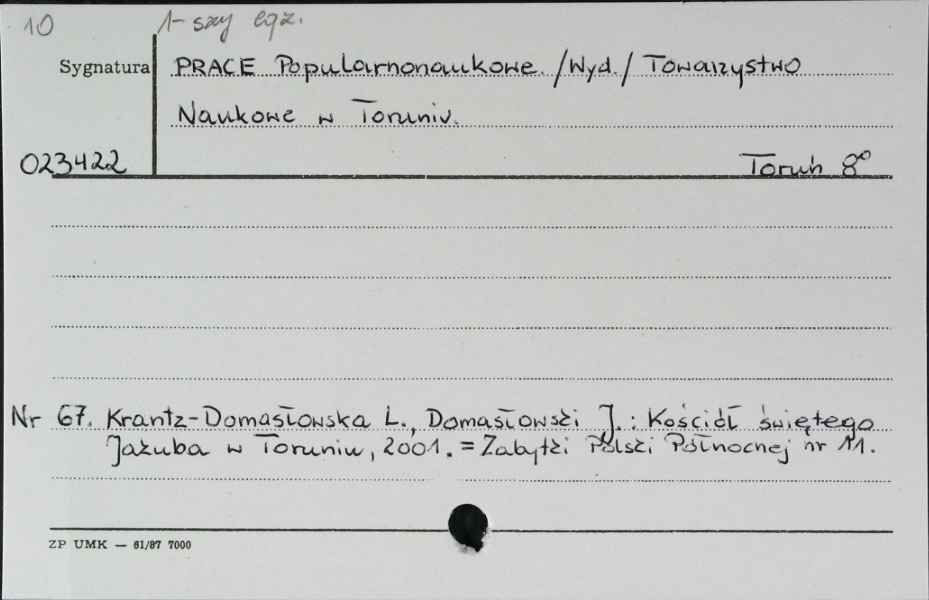 10 1-szy egz.
Sygnatura PRACE Popularnonaukowe. /Wyd./ Towarzystwo
Naukowe w Toruniu.
023422 Toruń 8°
Nr 67. Krantz-Domasłowska L., Domasłowski J.: Kościół świętego
Jakuba w Toruniu, 2001. = Zabytki Polski Północnej nr 11.
ZP UMK — 61/87 7000